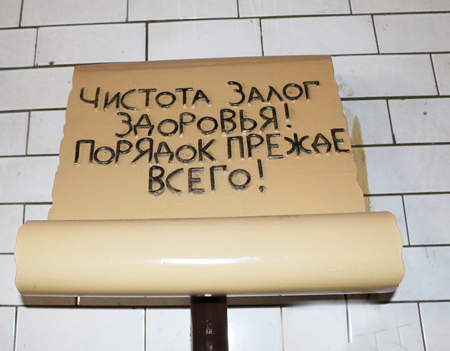 Чистота Залог
Здоровья!
Порядок прежде
всего!